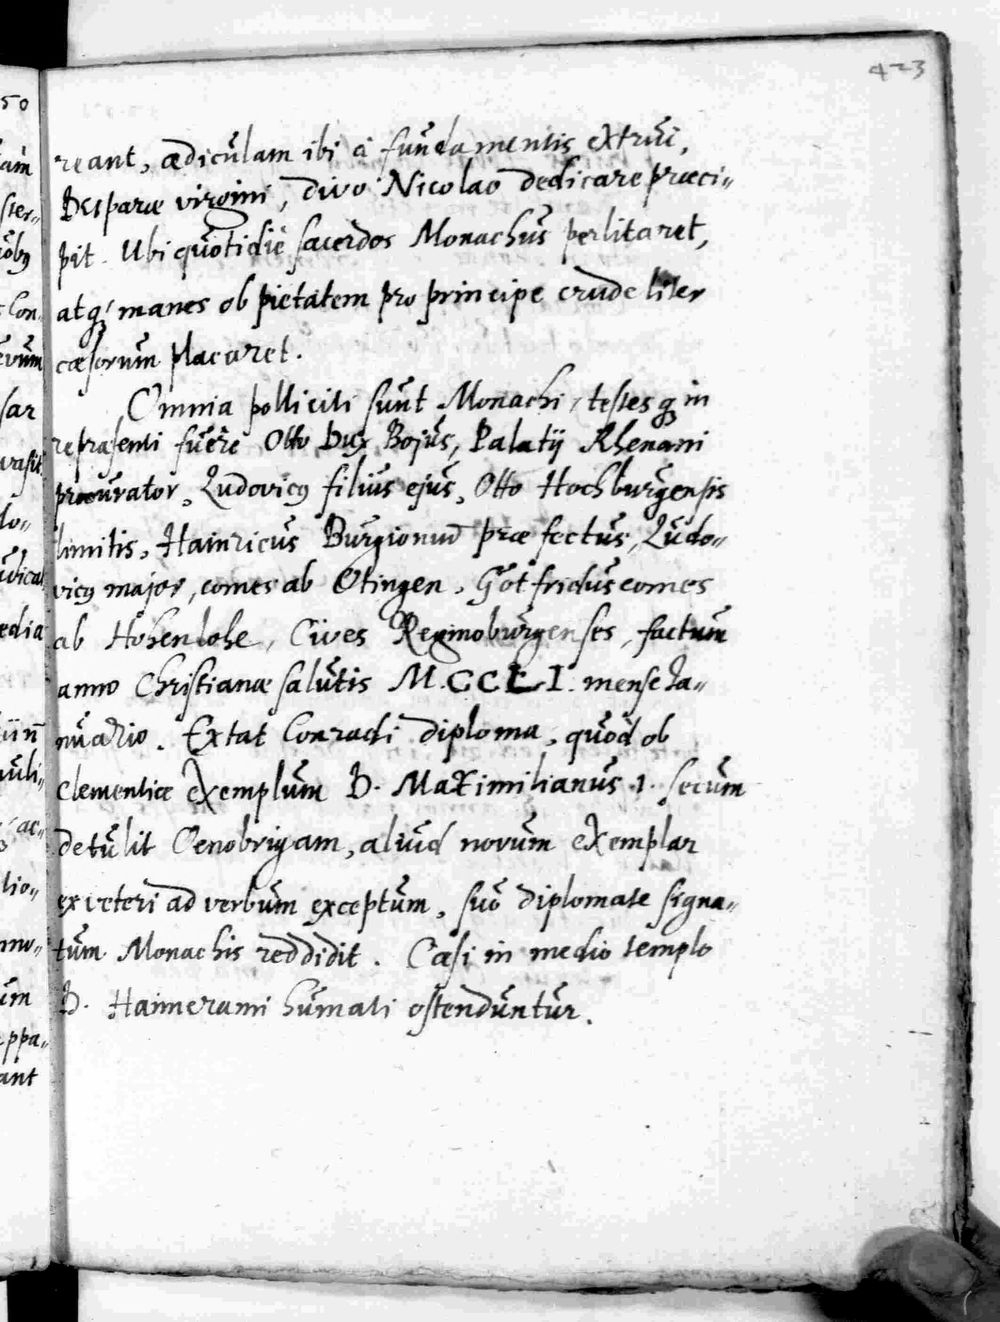 423
reant, ædiculam ibi à fundamentis extrui,
Deiparæ virgini, divo Nicolao dedicare præci-
pit. Ubi quotidie sacerdos Monachus perlitaret,
atq; manes ob pietatem pro principe crudeliter
cæsorum placaret.
Omnia polliciti sunt Monachi, testes q; in
repræsenti fuere Otto Dux Bojus, Palatij Rhenani
procurator, Ludovicus filius ejus, Otto Hochburgensis
limitis, Hainricus Burgionum præfectus, Ludo-
vicus major, comes ab Otingen, Gotfridus comes
ab Hohenlohe, Cives Reginoburgenses, factum
anno Christianæ salutis M.CCLI. mense Ja-
nuario. Extat Conradi diploma, quod ob
Clementiæ exemplum D. Maximilianus .1. secum
detulit Oenobrigam, aliud novum exemplar
ex veteri ad verbum exceptum, suo diplomate signa-
tum Monachis reddidit. Cæsi in medio templo
D. Haimerami humati ostenduntur.
50